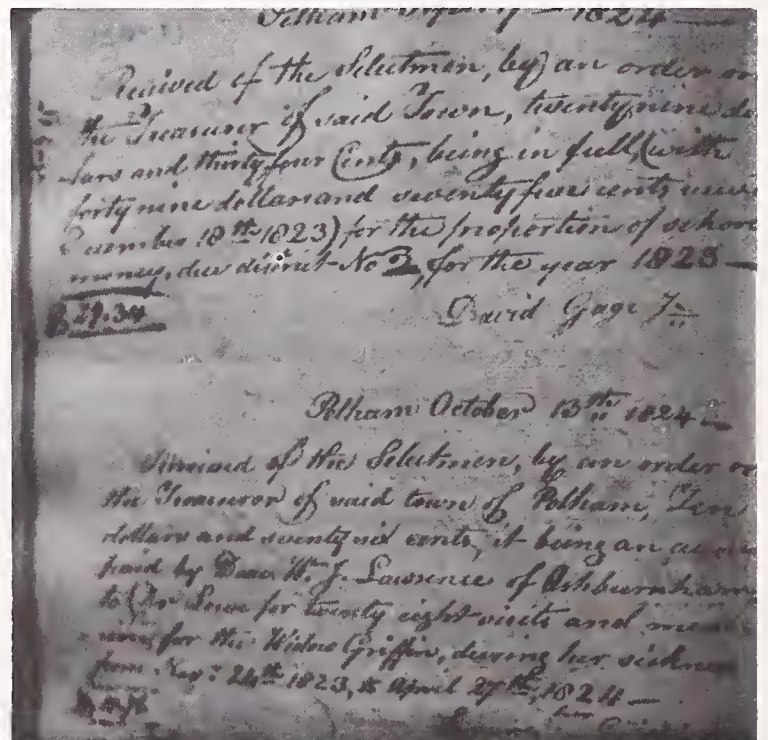 Pelham 1824
Received of the Selectmen, by an order on
the Treasurer of said Town, twenty nine dol
lars and thirty four Cents, being in full (with
forty nine dollars and seventy five cents
December 18th 1823) for the proportion of school
money, due district No 3, for the year 1823
$29.34
David Gage
Pelham October 13th 1824
Received of the Selectmen, by an order on
the Treasurer of said town of Pelham, Ten
dollars and seventy six cents, it being an
paid by Deac. W. J. Lawrence of Ashburnham
to Dr Lowe for twenty eight visits and
for the Widow Griffin, during her sickness
from Nov. 24th 1823, to April 27th, 1824